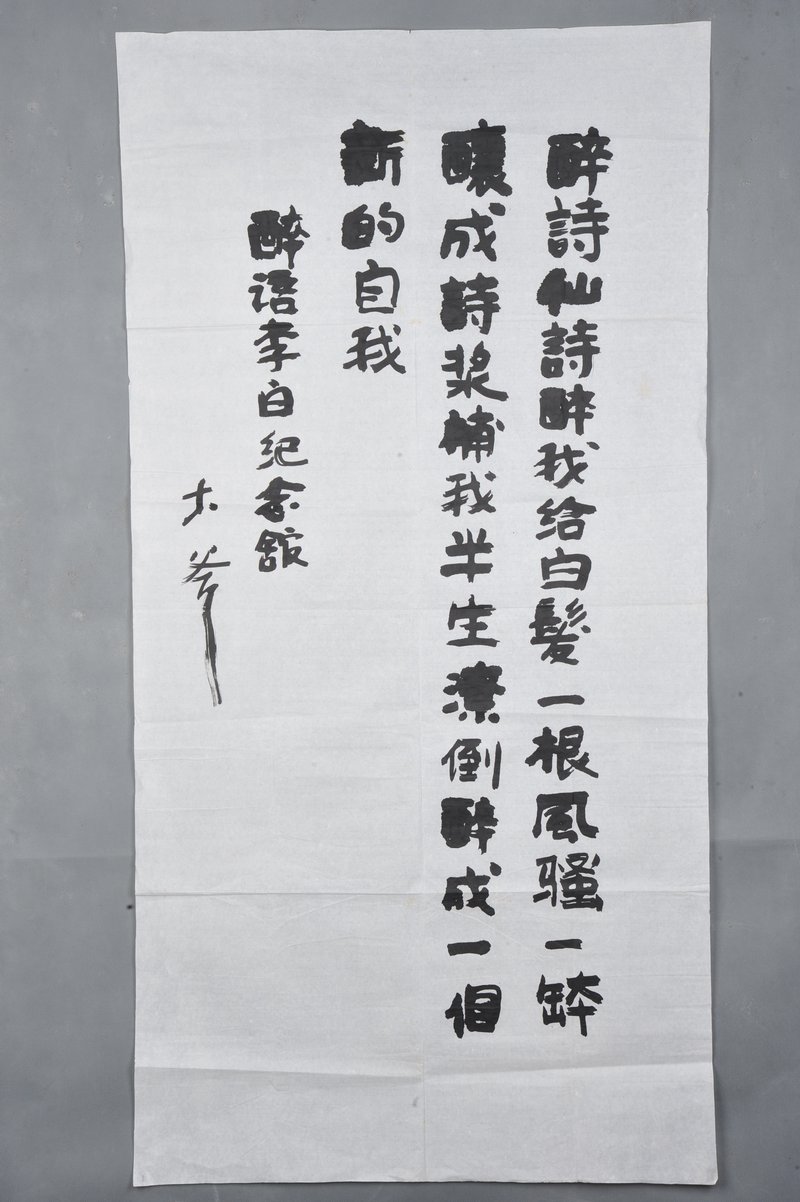 醉詩仙詩醉我给白髮一根風骚一缽
釀成詩浆補我半生潦倒醉成一個
新的自我
醉语李白纪念館
大斧